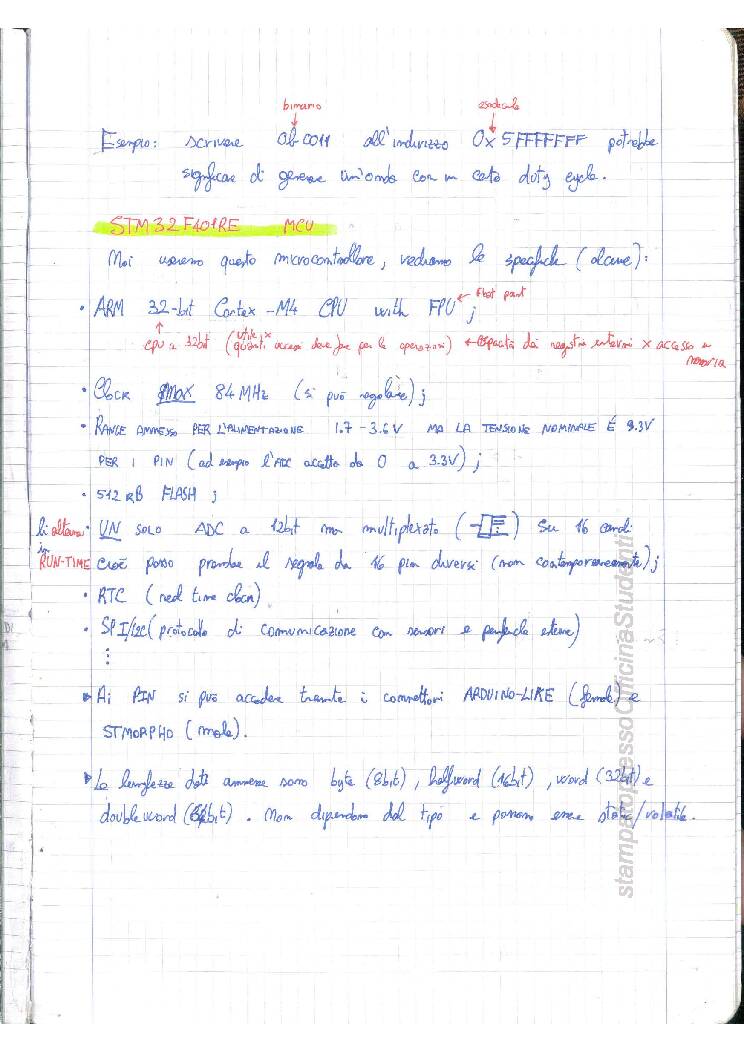 binario esadecimale
Esempio: scrivere 0b0011 all'indirizzo 0x5FFFFFFF potrebbe
significare di generare un'onda con un certo duty cycle.
STM32F401RE MCU
Noi useremo questo microcontrollore, vediamo le specifiche (alcune):
• ARM 32-bit Cortex-M4 CPU with FPU ; ← float point
cpu a 32bit (utile x quanti accessi deve fare per le operazioni) ← capacità dei registri interni x accesso a memoria
• Clock max 84 MHz (si può regolare) ;
• RANGE AMMESSO PER L'ALIMENTAZIONE 1.7-3.6V MA LA TENSIONE NOMINALE È 3.3V
PER I PIN (ad esempio l'ADC accetta da 0 a 3.3V) ;
• 512 kB FLASH ;
• UN SOLO ADC a 12bit ma multiplexato ( ) su 16 canali
li alterna in RUN-TIME
cioè posso prendere il segnale da 16 pin diversi (non contemporaneamente) ;
• RTC (real time clock)
• SPI/I2C (protocollo di comunicazione con sensori e periferiche esterne)
⋮
► Ai PIN si può accedere tramite i connettori ARDUINO-LIKE (female) e
STMORPHO (male).
► Le lunghezze dati ammesse sono byte (8bit), halfword (16bit), word (32bit) e
doubleword (64bit). Non dipendono dal tipo e possono essere static/volatile.
stampatopressoOfficinaStudenti